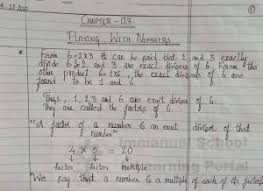 CHAPTER - 03
PLAYING WITH NUMBERS
From 6 = 2x3 it can be said that 2 and 3 exactly
divide 6. 2 and 3 are exact divisors of 6. From the
other product 6 = 1x6, the exact divisors of 6 are
found to be 1 and 6.
Thus, 1, 2, 3 and 6 are exact divisors of 6.
They are called the factors of 6.
"A factor of a number is an exact divisor of that
number"
4 x 9 =
factor factor multiple
We say that a number is a multiple of each of its factors